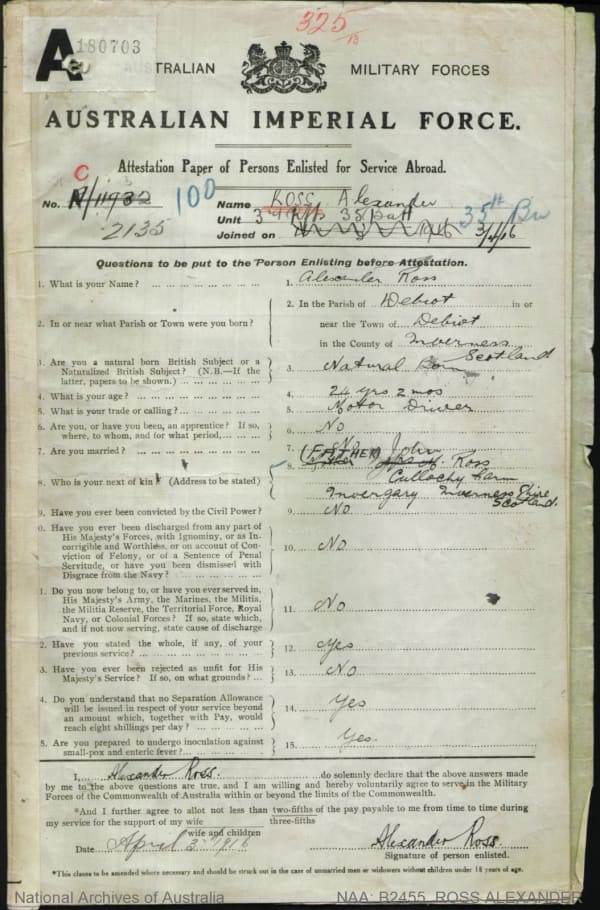 325
A 180703
AUSTRALIAN MILITARY FORCES
AUSTRALIAN IMPERIAL FORCE.
Attestation Paper of Persons Enlisted for Service Abroad.
No. N/11932 100 Name ROSS Alexander
2135 Unit 35 Batt 35th Bn
Joined on 3/4/16
Questions to be put to the Person Enlisting before Attestation.
1. What is your Name? ... 1. Alexander Ross
2. In or near what Parish or Town were you born? 2. In the Parish of Debiot in or
near the Town of Debiot
in the County of Inverness
Scotland
3. Are you a natural born British Subject or a
Naturalized British Subject? (N.B.—If the
latter, papers to be shown.) 3. Natural Born
4. What is your age? 4. 24 yrs 2 mos
5. What is your trade or calling? 5. Motor Driver
6. Are you, or have you been, an apprentice? If so,
where, to whom, and for what period 6. No
7. Are you married? 7. No
8. Who is your next of kin? (Address to be stated) 8. (FATHER) John Ross
Cullochy Farm
Invergary Inverness Shire
Scotland.
9. Have you ever been convicted by the Civil Power? 9. No
0. Have you ever been discharged from any part of
His Majesty's Forces, with Ignominy, or as In-
corrigible and Worthless, or on account of Con-
viction of Felony, or of a Sentence of Penal
Servitude, or have you been dismissed with
Disgrace from the Navy? 10. No
1. Do you now belong to, or have you ever served in,
His Majesty's Army, the Marines, the Militia,
the Militia Reserve, the Territorial Force, Royal
Navy, or Colonial Forces? If so, state which,
and if not now serving, state cause of discharge 11. No
2. Have you stated the whole, if any, of your
previous service? 12. Yes
3. Have you ever been rejected as unfit for His
Majesty's Service? If so, on what grounds? 13. No
4. Do you understand that no Separation Allowance
will be issued in respect of your service beyond
an amount which, together with Pay, would
reach eight shillings per day? 14. Yes
5. Are you prepared to undergo inoculation against
small-pox and enteric fever? 15. Yes.
I, Alexander Ross. do solemnly declare that the above answers made
by me to the above questions are true, and I am willing and hereby voluntarily agree to serve in the Military
Forces of the Commonwealth of Australia within or beyond the limits of the Commonwealth.
*And I further agree to allot not less than two-fifths of the pay payable to me from time to time during
three-fifths
my service for the support of my wife
wife and children
Date April 3rd 1916 Alexander Ross.
Signature of person enlisted.
*This clause to be amended where necessary and should be struck out in the case of unmarried men or widowers without children under 18 years of age.
National Archives of Australia NAA: B2455, ROSS ALEXANDER